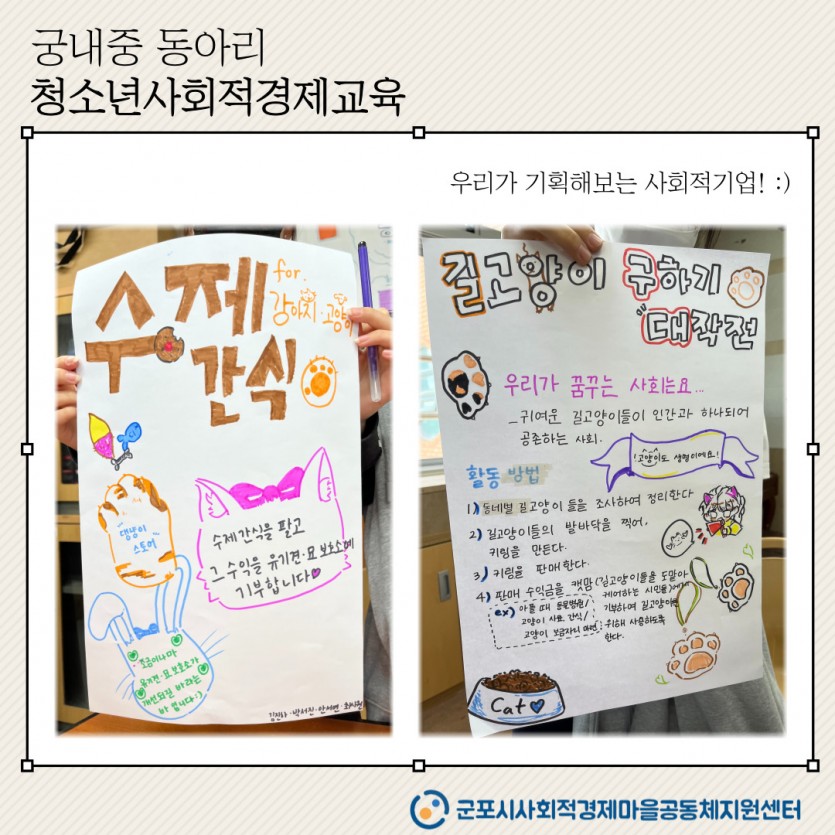 궁내중 동아리
청소년사회적경제교육
우리가 기획해보는 사회적기업! :)
수제
for.
강아지·고양이
간식
댕냥이
스토어
수제간식을 팔고
그 수익을 유기견·묘 보호소에
기부합니다
조금이나마
유기견·묘 보호소가
개선되길 바라는
바 입니다:)
길고양이 구하기
대작전
우리가 꿈꾸는 사회는요...
_귀여운 길고양이들이 인간과 하나되어
공존하는 사회.
고양이도 생명이에요!
활동 방법
1) 동네별 길고양이 들을 조사하여 정리한다
2) 길고양이들의 발바닥을 찍어,
키링을 만든다.
3) 키링을 판매한다.
4) 판매 수익금을 캣맘(길고양이들을 도맡아
케어하는 시민들)에게
기부하여 길고양이를
위해 사용하도록
한다.
ex) 아플 때 동물병원/
고양이 사료 간식/
고양이 보금자리 마련
Cat
군포시사회적경제마을공동체지원센터